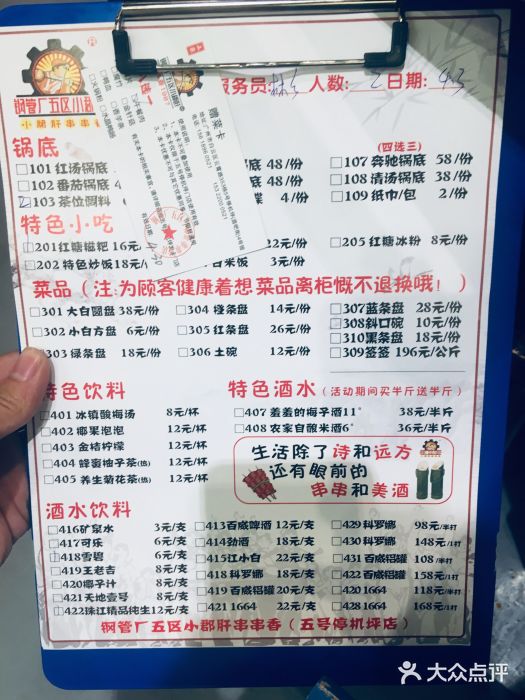 服务员: 人数: 2 日期: 43
钢管厂五区小郡
小郡肝串串香
赠菜卡
锅底
(四选三)
101 红汤锅底
102 番茄锅底
103 茶位饲料
底 48/份
底 12/份
4/份
107 奔驰锅底 58/份
108 清汤锅底 38/份
109 纸巾/包 2/份
特色小吃
201 红糖糍粑 16元/
202 特色炒饭 18元/
12元/份
白米饭 3元/份
205 红糖冰粉 8元/份
菜品(注:为顾客健康着想 菜品离柜慨不退换哦!)
301 大白圆盘 38元/份
304 橙条盘 14元/份
307 蓝条盘 28元/份
302 小白方盘 6元/份
305 红条盘 26元/份
308 斜口碗 10元/份
303 绿条盘 18元/份
306 土碗 12元/份
310 黑条盘 18元/份
309 签签 196元/公斤
特色饮料
401 冰镇酸梅汤 8元/杯
402 椰果泡泡 12元/杯
403 金桔柠檬 12元/杯
404 蜂蜜柚子茶(热) 12元/杯
405 养生菊花茶(热) 12元/杯
特色酒水(活动期间买半斤送半斤)
407 羞羞的梅子酒11° 38元/半斤
408 农家自酿米酒6° 36元/半斤
生活除了诗和远方
还有眼前的
串串和美酒
酒水饮料
416 矿泉水 3元/支
417 可乐 6元/支
418 雪碧 6元/支
419 王老吉 8元/支
420 椰子汁 8元/支
421 天地壹号 8元/支
422 珠江精品纯生 12元/支
413 百威啤酒 12元/支
414 劲酒 18元/支
415 江小白 22元/支
418 科罗娜 18元/支
419 百威铝罐 20元/支
421 1664 22元/支
429 科罗娜 98元/半打
430 科罗娜 148元/1打
431 百威铝罐 108/半打
422 百威铝罐 158元/1打
420 1664 118元/半打
428 1664 168元/1打
钢管厂五区小郡肝串串香(五号停机坪店)
大众点评